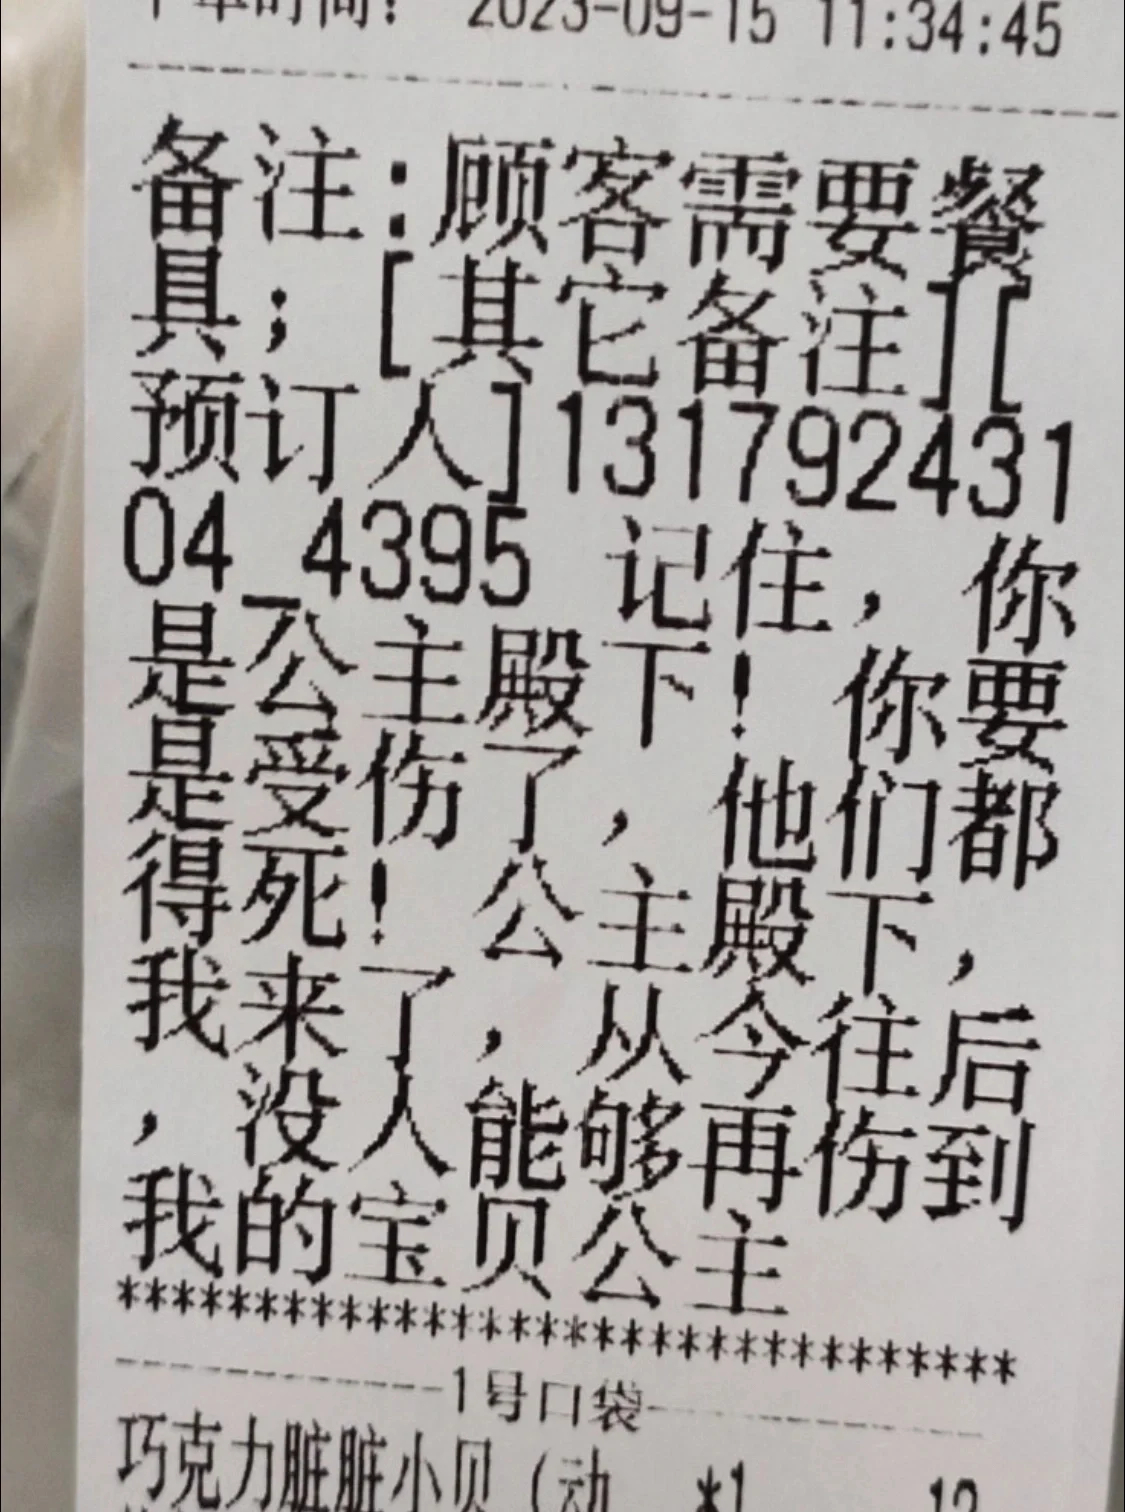 下单时间: 2023-09-15 11:34:45
备注:顾客需要餐
具; [其它备注][
预订人]131792431
04_4395 记住, 你
是公主殿下! 你要
是受伤了, 他们都
得死! 公主殿下,
我来了, 从今往后
, 没人能够再伤到
我的宝贝公主
********************************
1号口袋
巧克力脏脏小贝(动 *1